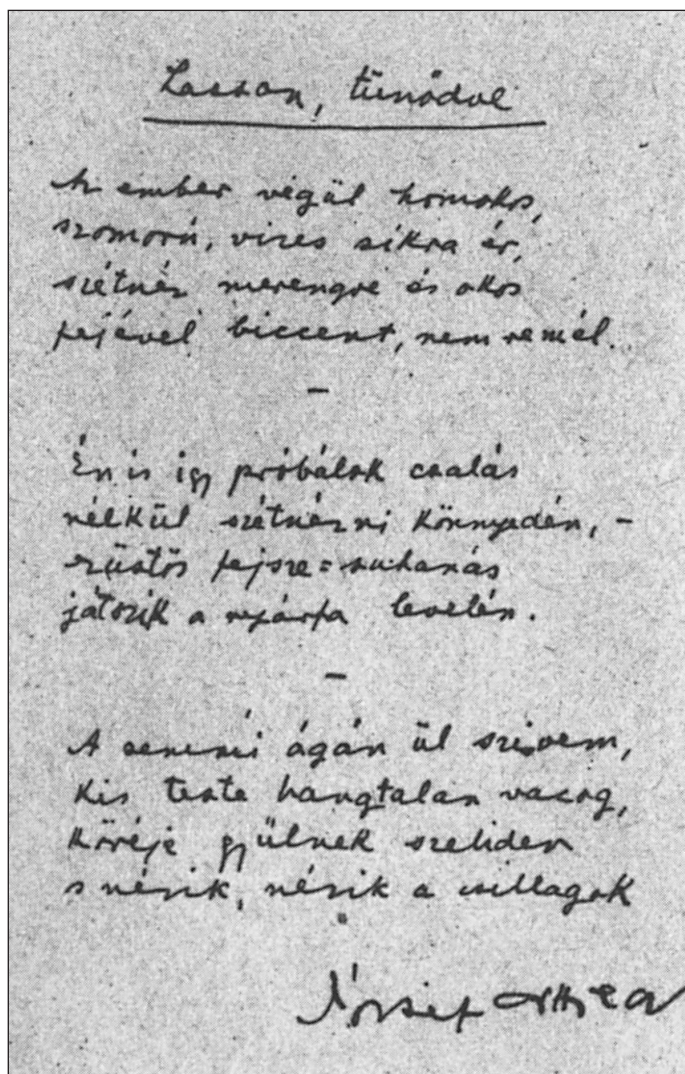 Lassan, tünődve
Az ember végül homokos,
szomorú, vizes síkra ér,
szétnéz merengve és okos
fejével biccent, nem remél.
–
Én is így próbálok csalás
nélkül szétnézni könnyedén, –
ezüstös fejsze=suhanás
játszik a nyárfa levelén.
–
A semmi ágán ül szivem,
kis teste hangtalan vacog,
köréje gyülnek szeliden
s nézik, nézik a csillagok
József Attila